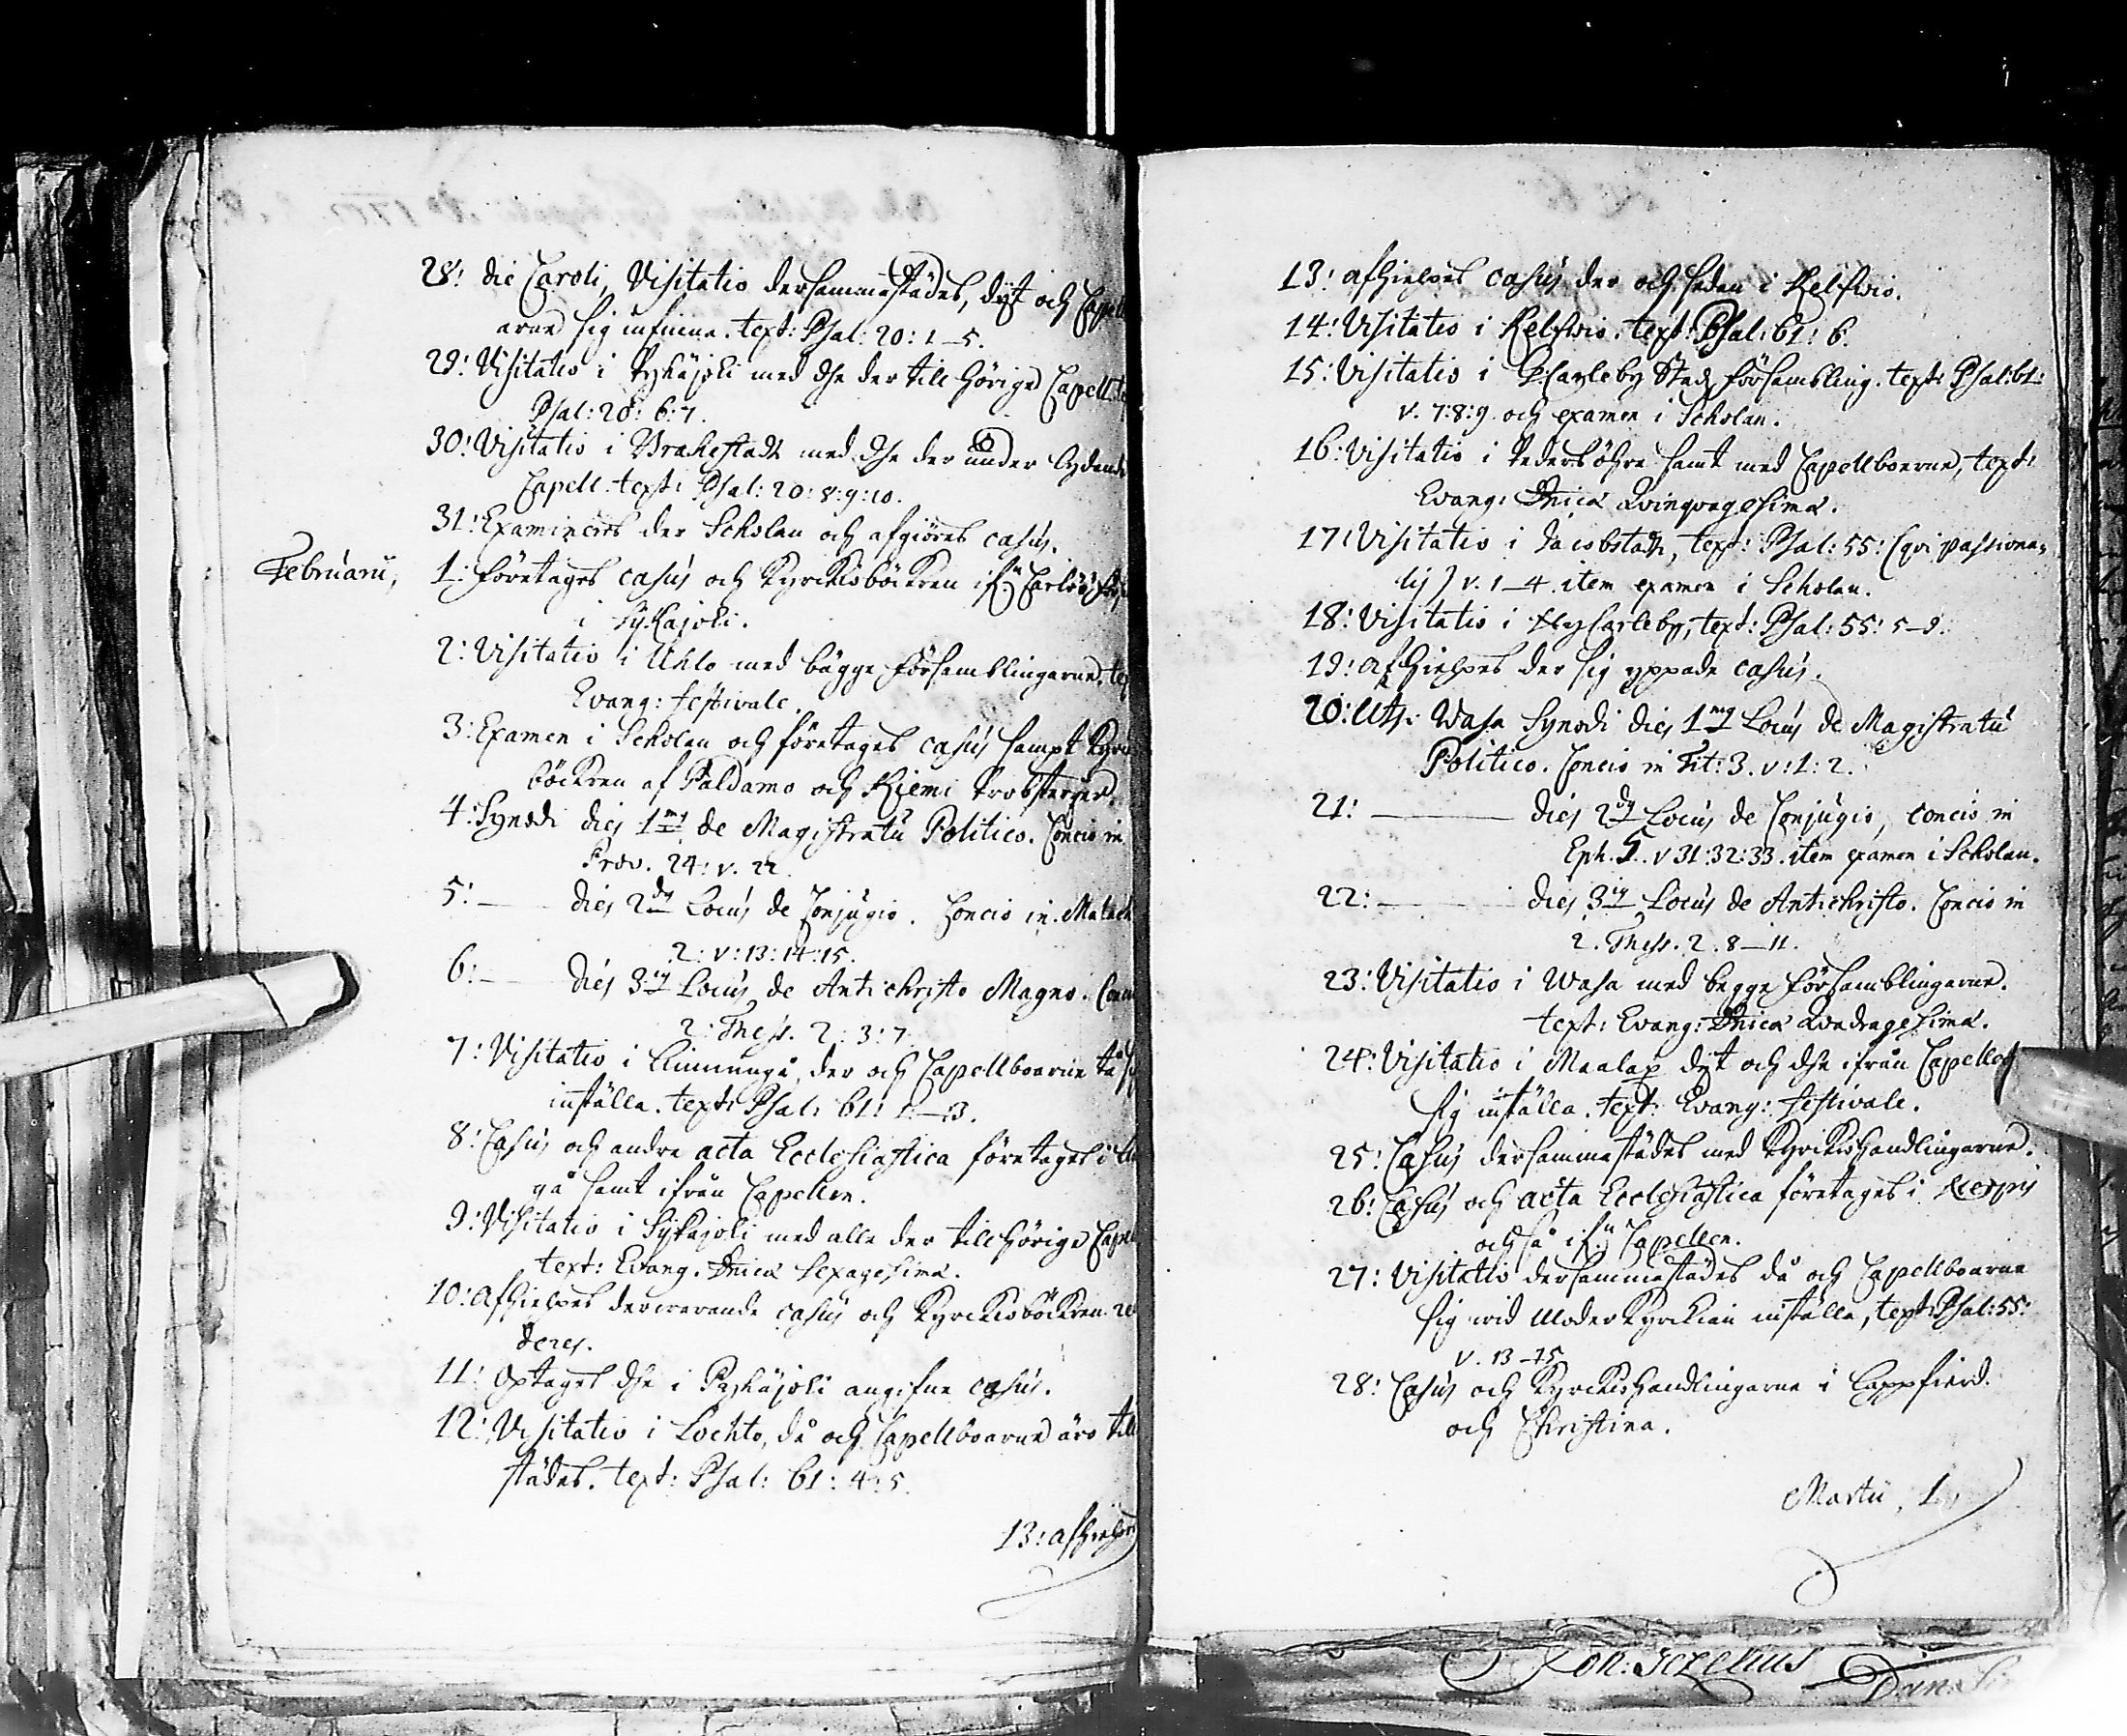 28: die Caroli, Visitatio dersammastädes, dijt och Capell
arne sig infinna. text: Psal: 20: 1–5.
29: Visitatio i Pyhäjoki med dhe der till hörige Capell
Psal: 20: 6: 7.
30: Visitatio i Brahestadh med dhe der under lydande
Capell. text: Psal: 20: 8: 9: 10.
31: Examineres der Scholan och afgiöres casus.
Februarii, 1: företages casus och Kyrckioböckren ifr: Carlöö
i Sijkajoki.
2: Visitatio i Uhlo med bägge församblingarne, tex
Evang: festivale.
3: Examen i Scholan och företages casus sampt Kyrc
böckren af Paldamo och Kiemi Probsterier.
4: Synodi dies 1mus de Magistratu Politico. Concio in
Prov. 24: v. 22.
5: — dies 2dus Locus de Conjugio. Concio in Malach
2: v: 13: 14: 15.
6: — dies 3ius Locus de Antichristo Magno. Conc
2: Thess. 2: 3: 7.
7: Visitatio i Limmingå, der och Capellboarne
inställa. text: Psal: 61: 1–3.
8: Casus och andre acta Ecclesiastica företages i
gå samt ifrån Capellen.
9: Visitatio i Sijkajoki med alle der till hörige Capel
text: Evang. Dnica Sexagesima.
10: Afhielpes derwarande casus och Kyrckioböckren
deres.
11: Optages dhe i Pyhäjoki angifne casus.
12: Visitatio i Lochto, då och Capellboarne äro till
städes. text: Psal: 61: 4: 5.
13: afhielpes
13: afhielpes casus der och sedan i Kelfwio.
14: Visitatio i Kelfwio. text: Psal: 61: 6.
15: Visitatio i G: Carleby Stadz försambling. text: Psal: 61:
v. 7: 8: 9. och examen i Scholan.
16: Visitatio i Pedersöhre samt med Capellboerne, text:
Evang: Dnica Qvinqvagesima.
17: Visitatio i Jacobstadh, text: Psal: 55: (qvi passiona-
lis) v. 1–4. item examen i Scholan.
18: Visitatio i NyCarleby, text: Psal: 55: 5–9.
19: afhielpes der sig yppade casus.
20: Uthi Wasa Synodi dies 1mus Locus de Magistratu
Politico. Concio in Tit: 3. v: 1: 2.
21: — dies 2dus Locus de Conjugio, concio in
Eph. 5. v 31: 32: 33. item examen i Scholan.
22: — dies 3ius Locus de Antichristo. Concio in
2. Thess. 2. 8–11.
23: Visitatio i Wasa med begge församblingarne.
text: Evang: Dnica Qvadragesima.
24: Visitatio i Maalax dijt och dhe ifrån Capellet
sig inställa. text: Evang: festivale.
25: Casus dersammastädes med Kyrckiohandlingarne.
26: Casus och acta Ecclesiastica företages i Nerpis
och så ifrn Capellen.
27: Visitatio dersammastädes då och Capellboarne
sig wid ModerKyrckian inställa, text: Psal: 55:
v. 13–15
28: Casus och Kyrckiohandlingarne i Lappfierd
och Christina.
Martii, 1
Joh: Gezelius